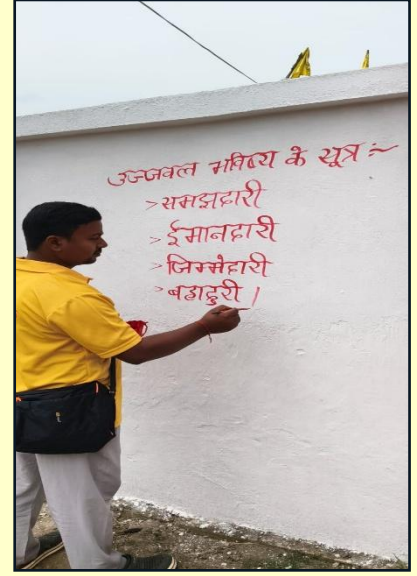 उज्जवल भविष्य के सूत्र :~
>समझदारी
>ईमानदारी
>जिम्मेदारी
>बहादुरी।